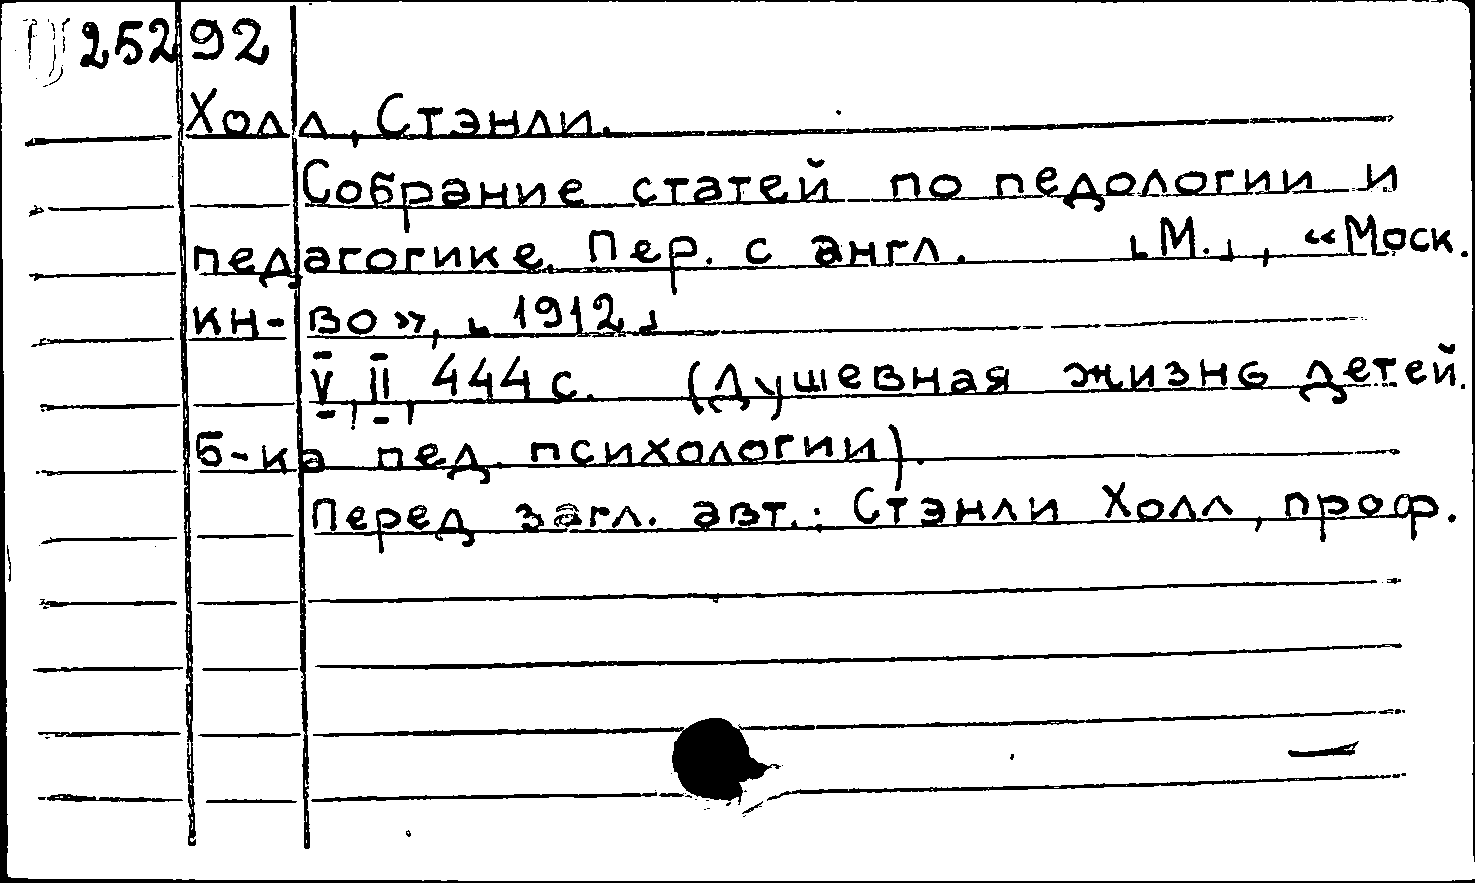 25292
Холл, Стэнли.
Собрание статей по педологии и
педагогике. Пер. с англ. [М.], «Моск.
кн-во», [1912]
V, II, 444 с. (Душевная жизнь детей.
Б-ка пед. психологии).
Перед загл. авт.: Стэнли Холл, проф.